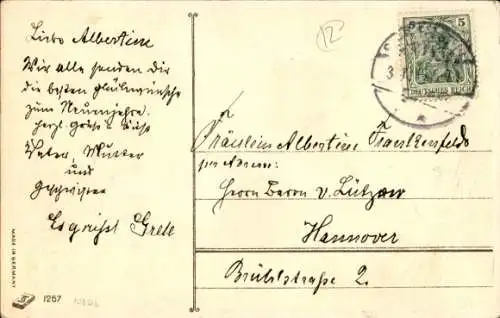 Liebe Albertine
Wir alle senden Dir
die besten Glückwünsche
zum Neuenjahre.
herzl. Grüße u. Küße
Vater, Mutter
und
Geschwister
Es grüßt Grete
12
5
DEUTSCHES REICH
Fräulein Albertine
per Adresse:
Herrn Baron v. Lützow
Hannover
Brühlstraße 2.
MADE IN GERMANY
1257